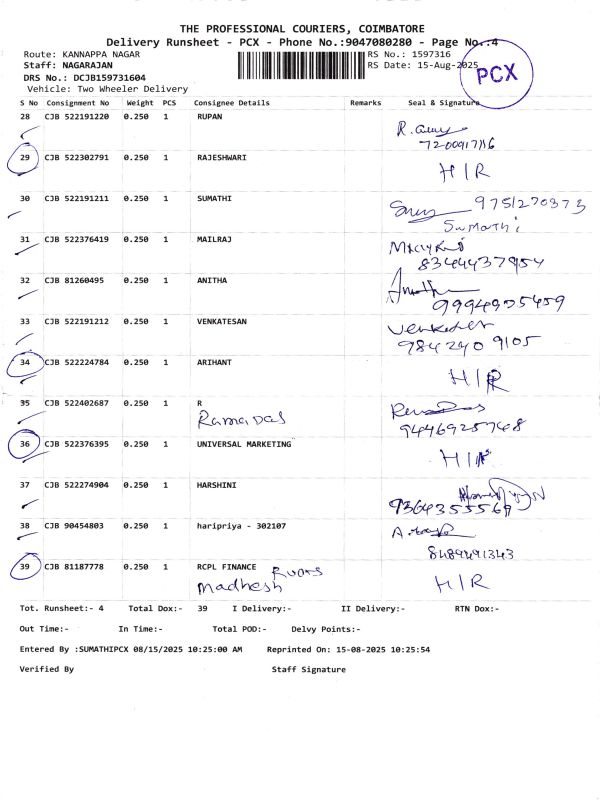 THE PROFESSIONAL COURIERS, COIMBATORE
Delivery Runsheet - PCX - Phone No.:9047080280 - Page No.:4
Route: KANNAPPA NAGAR RS No.: 1597316
Staff: NAGARAJAN RS Date: 15-Aug-2025
PCX
DRS No.: DCJB159731604
Vehicle: Two Wheeler Delivery
S No Consignment No Weight PCS Consignee Details Remarks Seal & Signature
28 CJB 522191220 0.250 1 RUPAN
29 CJB 522302791 0.250 1 RAJESHWARI H/R
30 CJB 522191211 0.250 1 SUMATHI 9751270373
Sumathi
31 CJB 522376419 0.250 1 MAILRAJ
8344437954
32 CJB 81260495 0.250 1 ANITHA
9994935459
33 CJB 522191212 0.250 1 VENKATESAN
984240 9105
34 CJB 522224784 0.250 1 ARIHANT H/R
35 CJB 522402687 0.250 1 R
Ramadas 9446925748
36 CJB 522376395 0.250 1 UNIVERSAL MARKETING H/R
37 CJB 522274904 0.250 1 HARSHINI
9364355569
38 CJB 90454803 0.250 1 haripriya - 302107
39 CJB 81187778 0.250 1 RCPL FINANCE
Madhesh H/R
Tot. Runsheet:- 4 Total Dox:- 39 I Delivery:- II Delivery:- RTN Dox:-
Out Time:- In Time:- Total POD:- Delvy Points:-
Entered By :SUMATHIPCX 08/15/2025 10:25:00 AM Reprinted On: 15-08-2025 10:25:54
Verified By Staff Signature